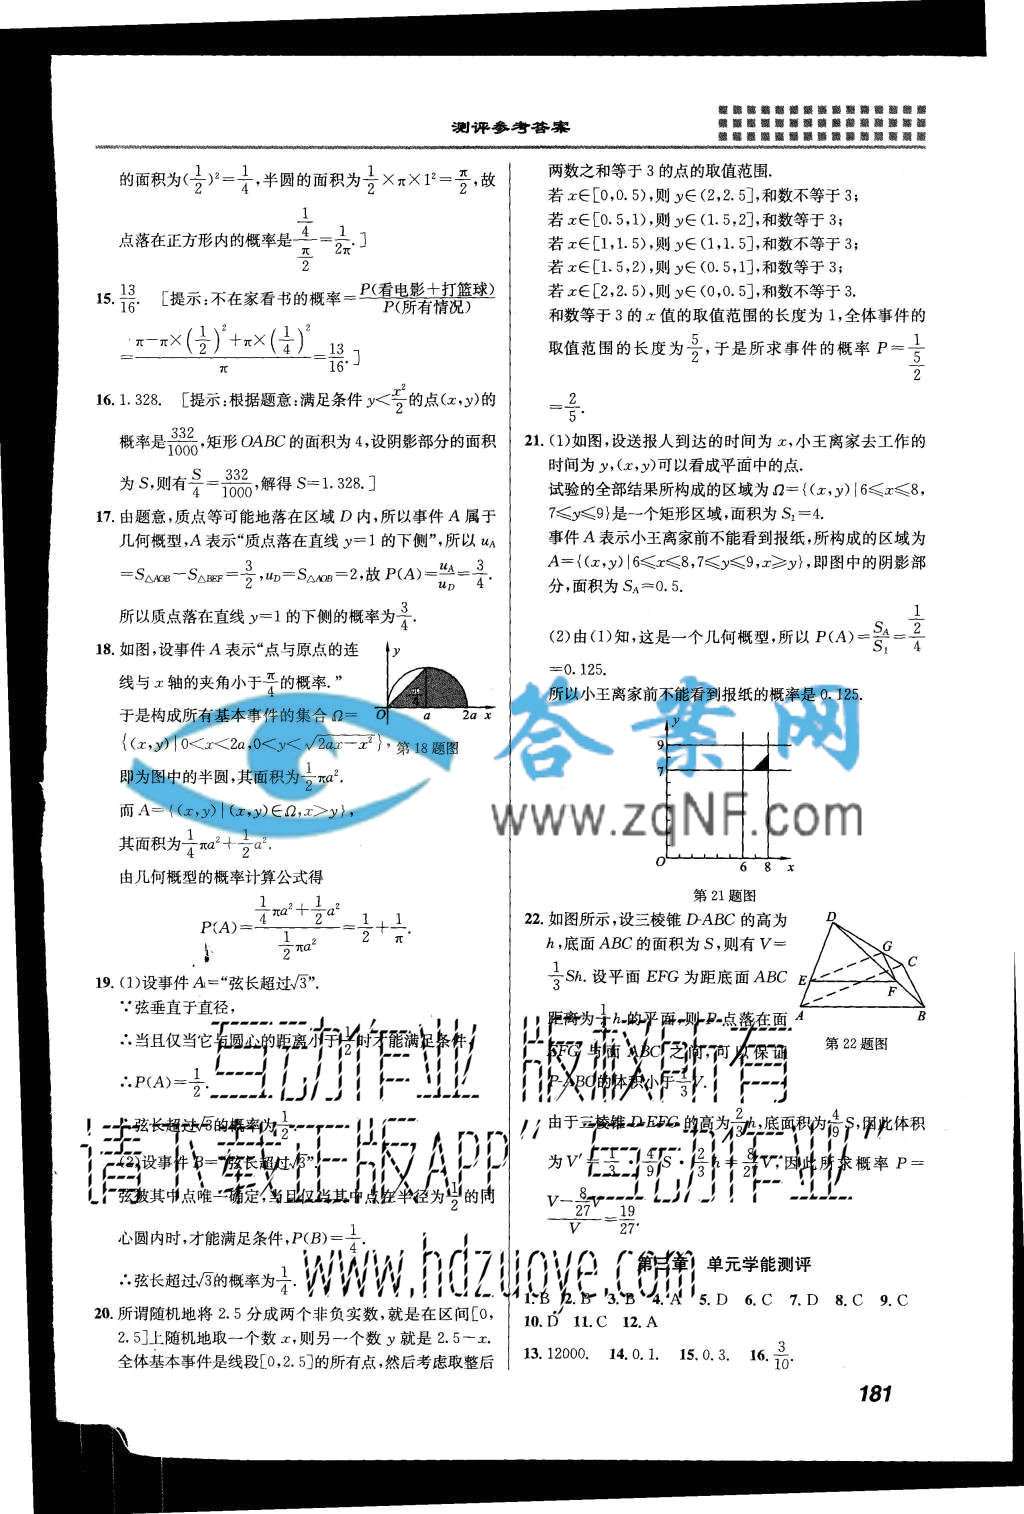 测评参考答案
的面积为(1/2)²=1/4,半圆的面积为1/2×π×1²=π/2,故
点落在正方形内的概率是(1/4)/(π/2)=1/2π.]
15. 13/16. [提示:不在家看书的概率=P(看电影+打篮球)/P(所有情况)
=(π-π×(1/2)²+π×(1/4)²)/π=13/16.]
16. 1.328. [提示:根据题意:满足条件 y<x²/2的点(x,y)的
概率是332/1000,矩形OABC的面积为4,设阴影部分的面积
为S,则有S/4=332/1000,解得S=1.328.]
17. 由题意,质点等可能地落在区域D内,所以事件A属于
几何概型,A表示“质点落在直线y=1的下侧”,所以u_A
=S△AOB-S△BEF=3/2,u_D=S△AOB=2,故P(A)=u_A/u_D=3/4.
所以质点落在直线y=1的下侧的概率为3/4.
18. 如图,设事件A表示“点与原点的连
线与x轴的夹角小于π/4的概率.”
于是构成所有基本事件的集合Ω=
{(x,y)|0<x<2a,0<y<√(2ax-x²)},
即为图中的半圆,其面积为1/2πa².
而A={(x,y)|(x,y)∈Ω,x>y},
其面积为1/4πa²+1/2a².
由几何概型的概率计算公式得
P(A)=(1/4πa²+1/2a²)/(1/2πa²)=1/2+1/π.
y
π/4
O a 2a x
第18题图
19. (1)设事件A=“弦长超过√3”.
∵弦垂直于直径,
∴当且仅当它与圆心的距离小于1/2时才能满足条件,
∴P(A)=1/2.
弦长超过√3的概率为1/2.
(2)设事件B=“弦长超过√3”
弦被其中点唯一确定,当且仅当其中点在半径为1/2的同
心圆内时,才能满足条件,P(B)=1/4.
∴弦长超过√3的概率为1/4.
20. 所谓随机地将2.5分成两个非负实数,就是在区间[0,
2.5]上随机地取一个数x,则另一个数y就是2.5-x.
全体基本事件是线段[0,2.5]的所有点,然后考虑取整后
两数之和等于3的点的取值范围.
若x∈[0,0.5),则y∈(2,2.5],和数不等于3;
若x∈[0.5,1),则y∈(1.5,2],和数等于3;
若x∈[1,1.5),则y∈(1,1.5],和数不等于3;
若x∈[1.5,2),则y∈(0.5,1],和数等于3;
若x∈[2,2.5),则y∈(0,0.5],和数不等于3.
和数等于3的x值的取值范围的长度为1,全体事件的
取值范围的长度为5/2,于是所求事件的概率P=1/(5/2)
=2/5.
21. (1)如图,设送报人到达的时间为x,小王离家去工作的
时间为y,(x,y)可以看成平面中的点.
试验的全部结果所构成的区域为Ω={(x,y)|6≤x≤8,
7≤y≤9}是一个矩形区域,面积为S₁=4.
事件A表示小王离家前不能看到报纸,所构成的区域为
A={(x,y)|6≤x≤8,7≤y≤9,x≥y},即图中的阴影部
分,面积为S_A=0.5.
(2)由(1)知,这是一个几何概型,所以P(A)=S_A/S₁=(1/2)/4
=0.125.
所以小王离家前不能看到报纸的概率是0.125.
y
9
7
O 6 8 x
第21题图
22. 如图所示,设三棱锥D-ABC的高为
h,底面ABC的面积为S,则有V=
1/3Sh.设平面EFG为距底面ABC
距离为1/3h的平面,则P点落在面
EFG与面ABC之间,可以保证
P-ABC的体积小于1/3V.
由于三棱锥D-EFG的高为2/3h,底面积为4/9S,因此体积
为V′=1/3·4/9S·2/3h=8/27V,因此所求概率P=
(V-8/27V)/V=19/27.
D
G
C
E
F
A
B
第22题图
第三章 单元学能测评
1. B 2. B 3. B 4. A 5. D 6. C 7. D 8. C 9. C
10. D 11. C 12. A
13. 12000. 14. 0.1. 15. 0.3. 16. 3/10.
181
答案网
www.zqNF.com
互动作业 版权所有
请下载正版APP“互动作业”
www.hdzuoye.com